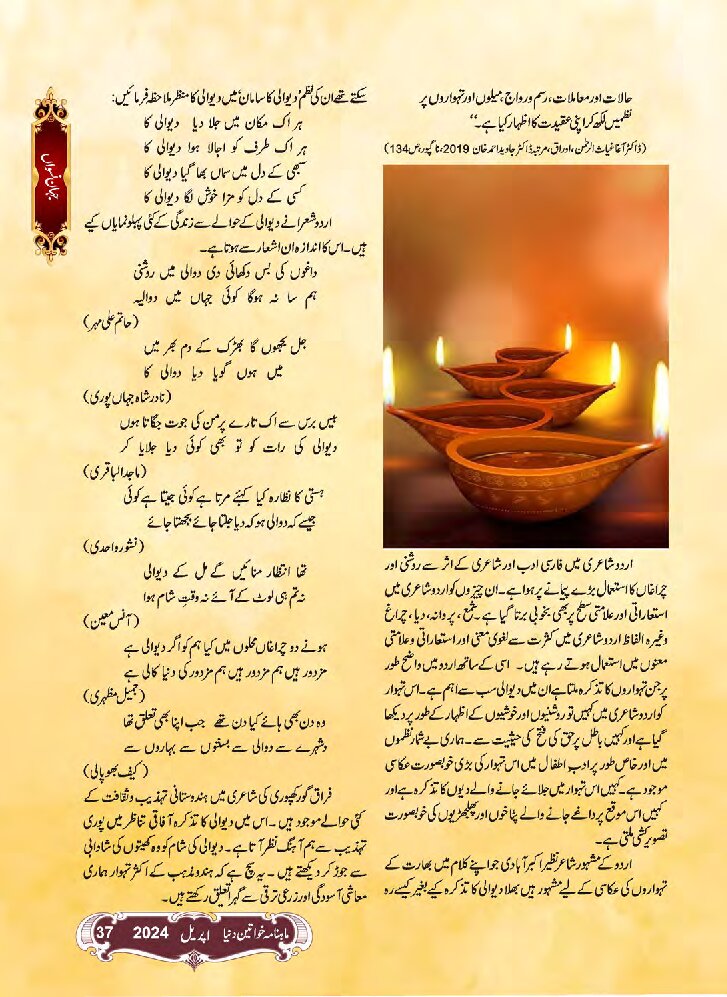 حالات اور معاملات، رسم و رواج، میلوں اور تہواروں پر
نظمیں لکھ کر اپنی عقیدت کا اظہار کیا ہے۔‘‘
(ڈاکٹر آغا غیاث الرحمٰن، اوراق، مرتبہ ڈاکٹر جاوید احمد خان، 2019، ناگپور، ص 134)
اردو شاعری میں فارسی ادب اور شاعری کے اثر سے روشنی اور
چراغاں کا استعمال بڑے پیمانے پر ہوا ہے۔ ان چیزوں کو اردو شاعری میں
استعاراتی اور علامتی سطح پر بھی بخوبی برتا گیا ہے۔ شمع، پروانہ، دیا، چراغ
وغیرہ الفاظ اردو شاعری میں کثرت سے لغوی معنی اور استعاراتی و علامتی
معنوں میں استعمال ہوتے رہے ہیں۔ اسی کے ساتھ اردو میں واضح طور
پر جن تہواروں کا تذکرہ ملتا ہے ان میں دیوالی سب سے اہم ہے۔ اس تہوار
کو اردو شاعری میں کہیں تو روشنیوں اور خوشیوں کے اظہار کے طور پر دیکھا
گیا ہے اور کہیں باطل پر حق کی فتح کی حیثیت سے۔ ہماری بے شمار نظموں
میں اور خاص طور پر ادب اطفال میں اس تہوار کی بڑی خوبصورت عکاسی
موجود ہے۔ کہیں اس تہوار میں جلائے جانے والے دیوں کا تذکرہ ہے اور
کہیں اس موقع پر داغے جانے والے پٹاخوں اور پھلجھڑیوں کی خوبصورت
تصویر کشی ملتی ہے۔
اردو کے مشہور شاعر نظیر اکبر آبادی جو اپنے کلام میں بھارت کے
تہواروں کی عکاسی کے لیے مشہور ہیں بھلا دیوالی کا تذکرہ کیے بغیر کیسے رہ
سکتے تھے ان کی نظم ’دیوالی کا سامان‘ میں دیوالی کا منظر ملاحظہ فرمائیں:
ہر اک مکان میں جلا دیا دیوالی کا
ہر اک طرف کو اجالا ہوا دیوالی کا
سبھی کے دل میں سماں بھا گیا دیوالی کا
کسی کے دل کو مزا خوش لگا دیوالی کا
اردو شعرا نے دیوالی کے حوالے سے زندگی کے کئی پہلو نمایاں کیے
ہیں۔ اس کا اندازہ ان اشعار سے ہوتا ہے۔
داغوں کی بس دکھائی دی دوالی میں روشنی
ہم سا نہ ہوگا کوئی جہاں میں دوالیہ
(حاتم علی مہر)
جل بجھوں گا بھڑک کے دم بھر میں
میں ہوں گویا دیا دوالی کا
(نادر شاہ جہاں پوری)
بیس برس سے اک تارے پر من کی جوت جگاتا ہوں
دیوالی کی رات کو تو بھی کوئی دیا جلایا کر
(ماجد الباقری)
ہستی کا نظارہ کیا کہئے مرتا ہے کوئی جیتا ہے کوئی
جیسے کہ دوالی ہو کہ دیا جلتا جائے بجھتا جائے
(نشور واحدی)
تھا انتظار منائیں گے مل کے دیوالی
نہ تم ہی لوٹ کے آئے نہ وقتِ شام ہوا
(آنس معین)
ہونے دو چراغاں محلوں میں کیا ہم کو اگر دیوالی ہے
مزدور ہیں ہم مزدور ہیں ہم مزدور کی دنیا کالی ہے
(جمیل مظہری)
وہ دن بھی ہائے کیا دن تھے جب اپنا بھی تعلق تھا
دشہرے سے دوالی سے بسنتوں سے بہاروں سے
(کیف بھوپالی)
فراق گورکھپوری کی شاعری میں ہندوستانی تہذیب و ثقافت کے
کئی حوالے موجود ہیں۔ اس میں دیوالی کا تذکرہ آفاقی تناظر میں پوری
تہذیب سے ہم آہنگ نظر آتا ہے۔ دیوالی کی شام کو وہ کھیتوں کی شادابی
سے جوڑ کر دیکھتے ہیں۔ یہ سچ ہے کہ ہندو مذہب کے اکثر تہوار ہماری
معاشی آسودگی اور زرعی ترقی سے گہرا تعلق رکھتے ہیں۔
جہان نسواں
ماہنامہ خواتین دنیا اپریل 2024 37